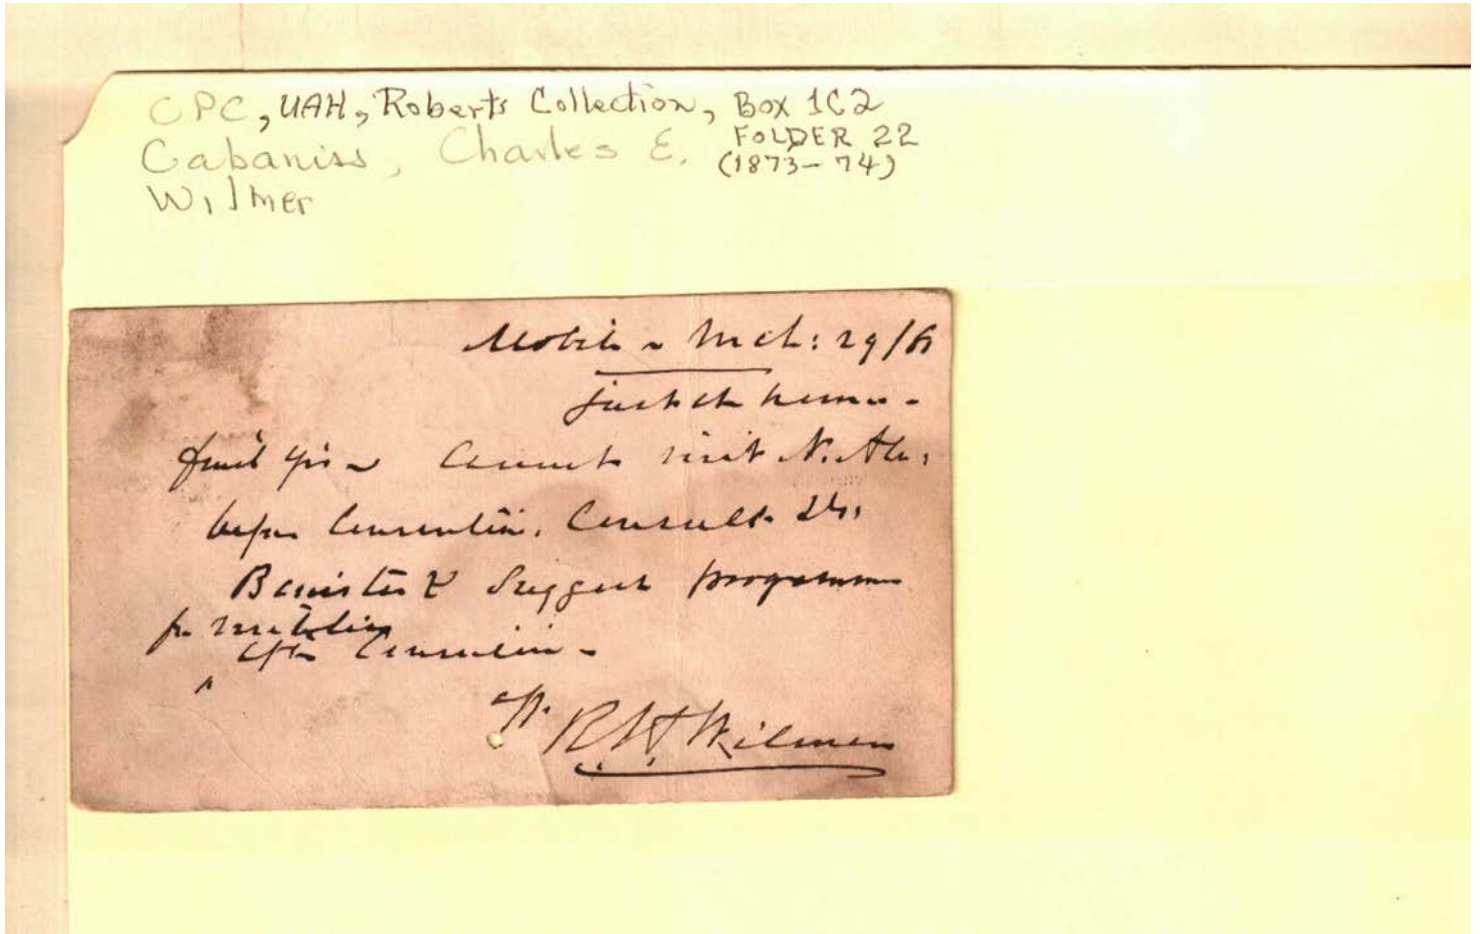 CPC, UAH, Roberts Collection, Box 1C2
FOLDER 22
Cabaniss, Charles E. (1873-74)
Wilmer
Mobile Mch: 29/
Just at home -
find yrs Cannot visit N. Ala.
before Convention. Consult Dr.
Banister & Suggest programme
for visitation
after Convention -
aff.
R. H. Wilmer